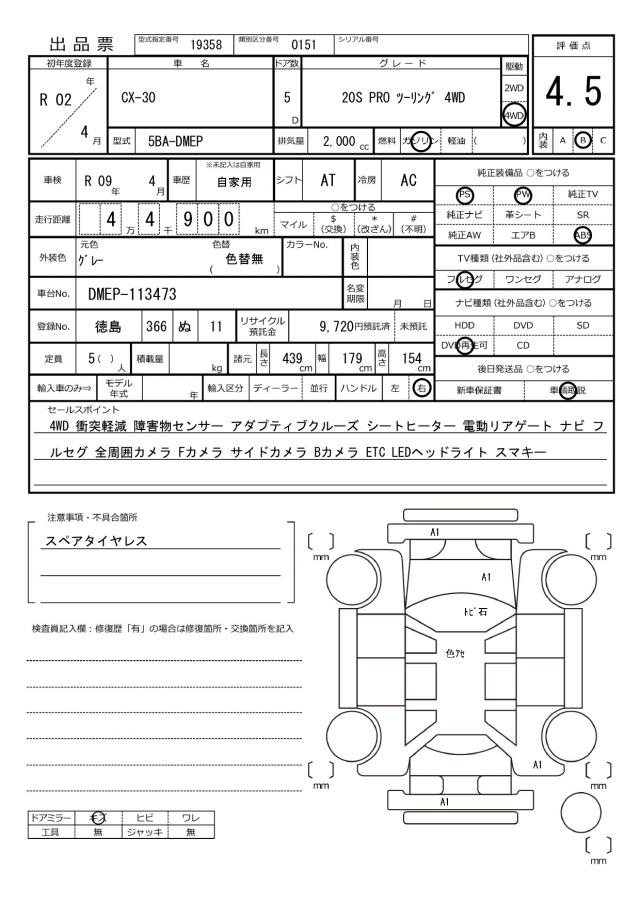 出品票 型式指定番号 19358 類別区分番号 0151 シリアル番号
評価点
4.5
初年度登録 車名 ドア数 グレード 駆動
R 02 年 4 月
CX-30 5 D 20S PRO ツーリング 4WD 2WD 4WD
型式 5BA-DMEP 排気量 2,000 cc 燃料 ガソリン 軽油 ( )
内装 A B C
車検 R 09 年 4 月 車歴 ※未記入は自家用 自家用 シフト AT 冷房 AC
走行距離 4 万 4 千 9 0 0 km
○をつける
マイル $(交換) *(改ざん) #(不明)
外装色 元色 グレー 色替 ( 色替無 ) カラーNo. 内装色
車台No. DMEP-113473 名変期限 月 日
登録No. 徳島 366 ぬ 11 リサイクル預託金 9,720円預託済 未預託
定員 5 ( ) 人 積載量 kg 諸元 長さ 439 cm 幅 179 cm 高さ 154 cm
輸入車のみ⇒ モデル年式 年 輸入区分 ディーラー 並行 ハンドル 左 右
純正装備品 ○をつける
PS PW 純正TV
純正ナビ 革シート SR
純正AW エアB ABS
TV種類 (社外品含む) ○をつける
フルセグ ワンセグ アナログ
ナビ種類 (社外品含む) ○をつける
HDD DVD SD
DVD再生可 CD
後日発送品 ○をつける
新車保証書 車輌取説
セールスポイント
4WD 衝突軽減 障害物センサー アダプティブクルーズ シートヒーター 電動リアゲート ナビ フ
ルセグ 全周囲カメラ Fカメラ サイドカメラ Bカメラ ETC LEDヘッドライト スマキー
注意事項・不具合箇所
スペアタイヤレス
検査員記入欄:修復歴「有」の場合は修復箇所・交換箇所を記入
A1
mm
mm
A1
トビ石
色アセ
A1
mm
mm
A1
mm
ドアミラー キズ ヒビ ワレ
工具 無 ジャッキ 無